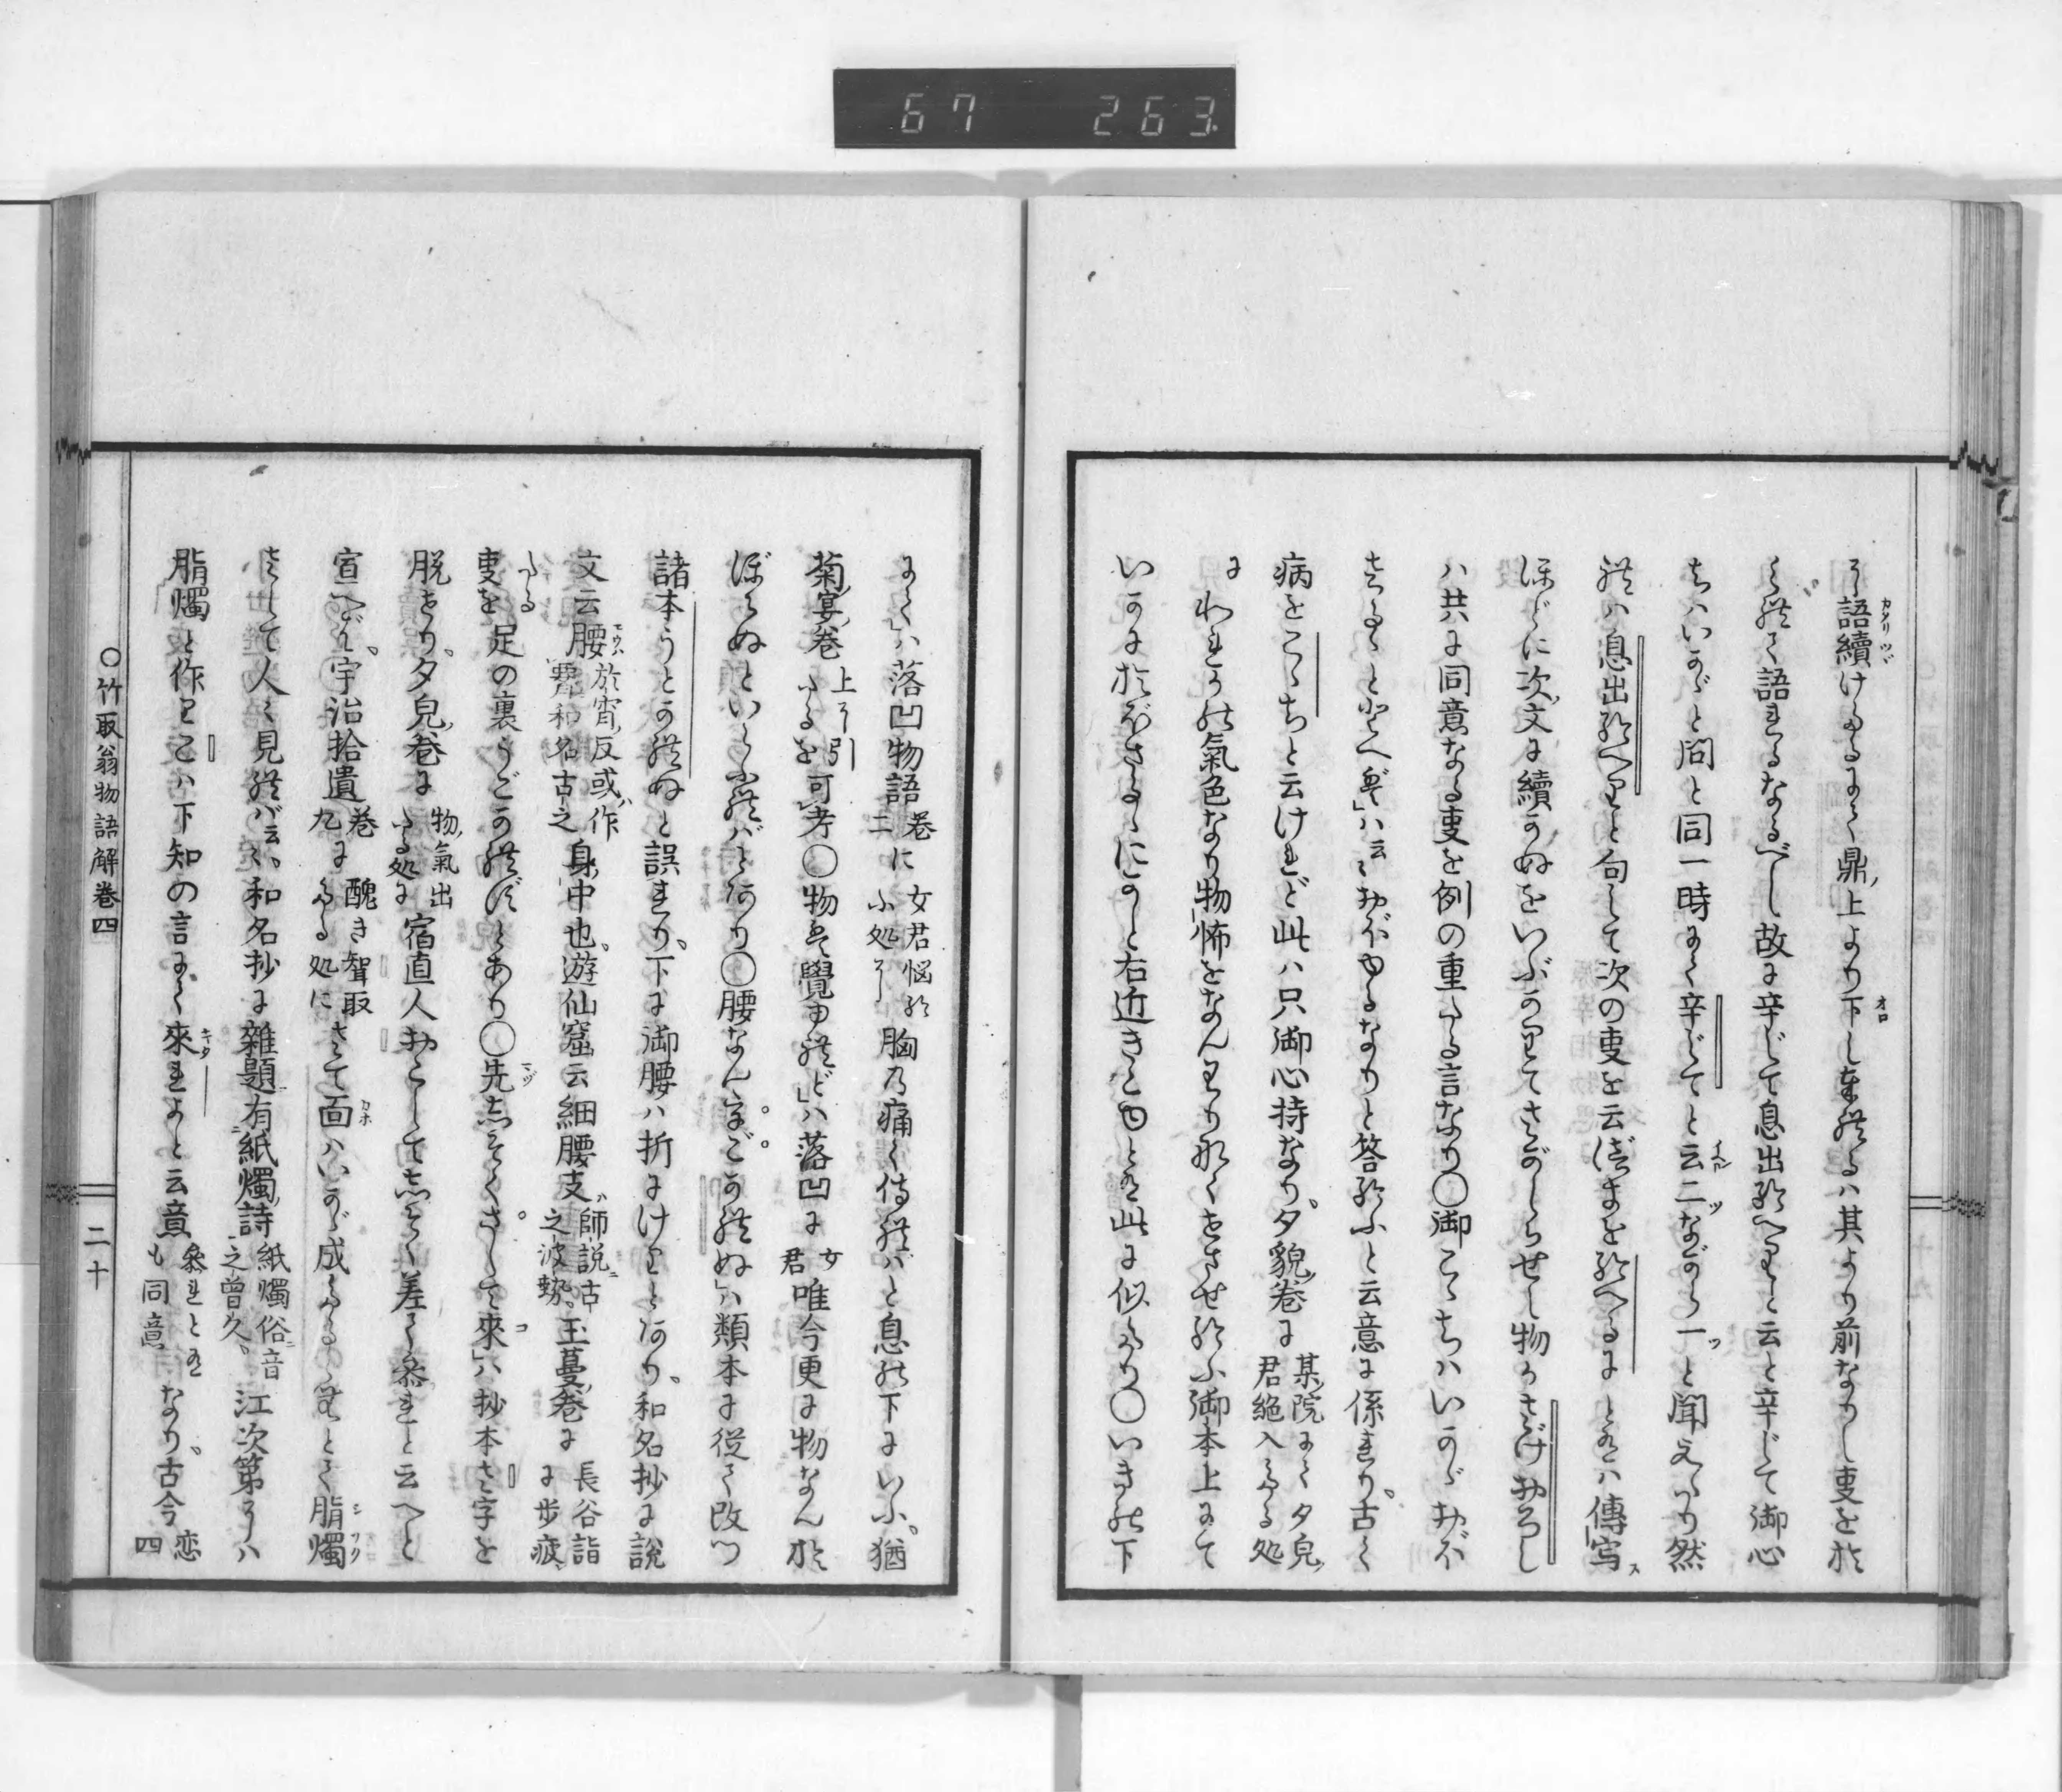 67 263
て語續けたるにて鼎ノ上より下し奉れるハ其より前なりし事をお
くれて語れるなるべし故に辛じて息出給へりと云と辛じて御心
ちハいかゞと問と同一時にて辛じてと云二ながら一と聞えたり然
れハ息出給へりと句して次の事を云はまを給へるにとあるハ傳写
ほどに次ノ文に續かぬをいぶかりてさかしらせし物かさてかきおろし
ハ共に同意なる事を例の重たる言なり○御こゝちハいかゞおぼ
さるゝととへば」ハ云々おぼゆるなりと答給ふと云意に係れり古く
病をこゝちと云けれど此ハ只御心持なり夕貌ノ巻に某ノ院にて夕皃ノ君絶入たる処
にわれかの氣色なり物怖をなんわりなくせさせ給ふ御本上にて
いかにおぼさるゝにかと右近きこゆとある此に似たり○いきの下
にて」ハ落凹物語巻二に女君悩給ふ処に胸乃痛く侍れバと息の下にいふ猶
菊ノ宴ノ巻上に引たるを可考○物は覺ゆれど」ハ落凹に女君唯今更に物なんお
ぼえぬといらふれバとあり○腰なんうごかれぬ」ハ類本に従て改つ
諸本うとかれぬと誤れり下に御腰ハ折にけりとあり和名抄に説
文云腰於宵ノ反或ハ作𦝫和名古之身ノ中也遊仙窟云細腰支師説古之波勢玉蔓ノ巻に長谷詣に歩疲たる
事を足の裏うごかれずとあり○先しそくさして來」ハ抄本さ字を
脱せり夕皃ノ巻に物ノ氣出たる処に宿直人おこして志そくさして參れと云へと
宣へば宇治拾遺巻九に醜き聟取たる処にさて面ハいかゞ成たるゝ見とて脂燭
さして人々見れバ云々和名抄に雜題ニ有紙燭ノ詩紙燭俗音之曽久江次第にハ
脂燭と作りこハ下知の言にて來れよと云意參れとあるも同意なり古今恋四
○竹取翁物語解巻四
二十